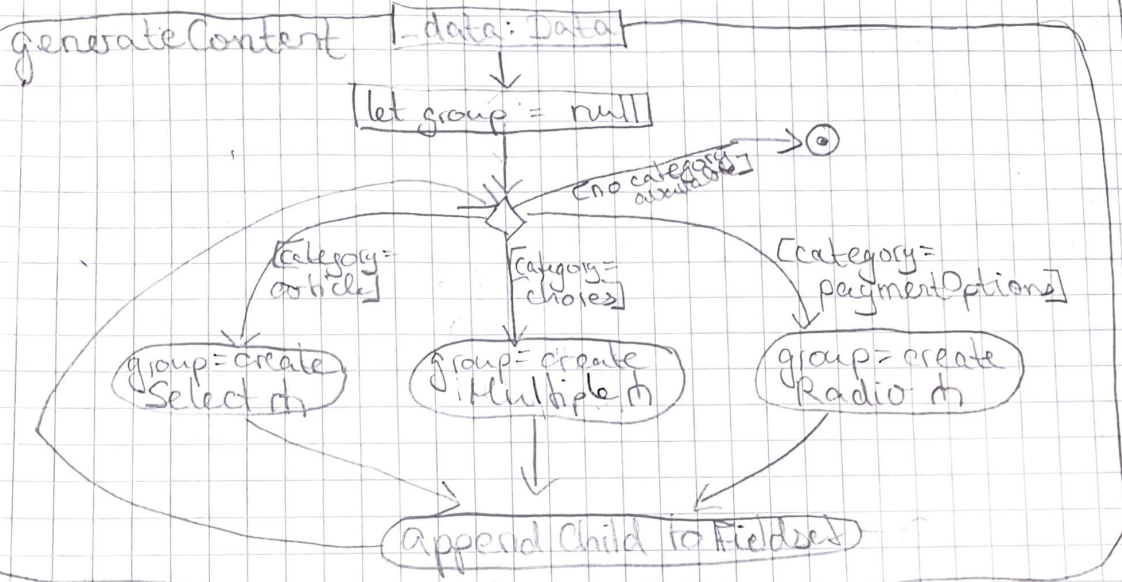 generateContent
_data: Data
let group = null
[no category
available]
[category=
article]
[category=
chores]
[category=
paymentOptions]
group=create
Select
group=create
Multiple
group=create
Radio
append Child to Fieldset